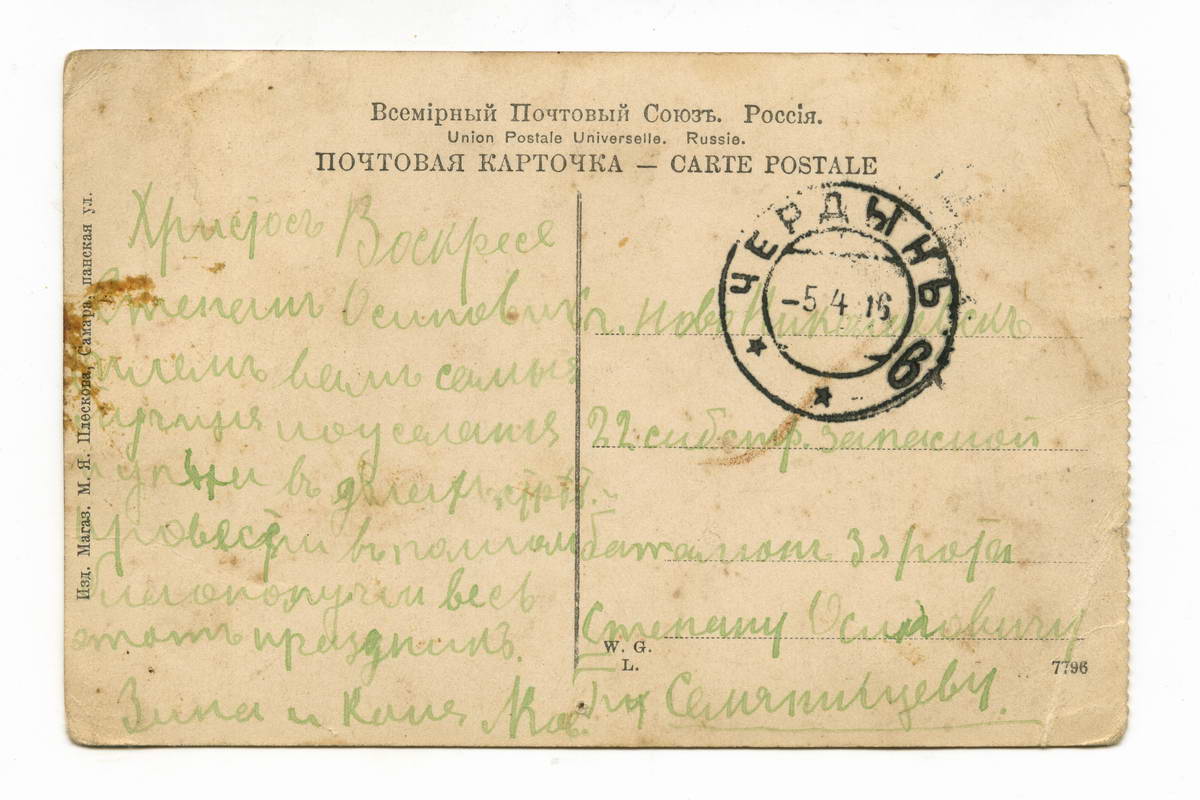 Всемірный Почтовый Союзъ. Россія.
Union Postale Universelle. Russie.
ПОЧТОВАЯ КАРТОЧКА — CARTE POSTALE
Изд. Магаз. М. Я. Плескова, Самара, панская ул.
ЧЕРДЫНЬ
-5 4 16
в
Христосъ Воскресе
Степанъ Осиповичъ
шлемъ вамъ самыя
въ
провести въ полном
благополучии весь
этотъ праздникъ.
Зина и
г. Ново Николаевскъ
22 сиб стр. запасной
баталион 3я рота
Степану Осиповичу
Гну Семянницеву.
W. G.
L.
7796